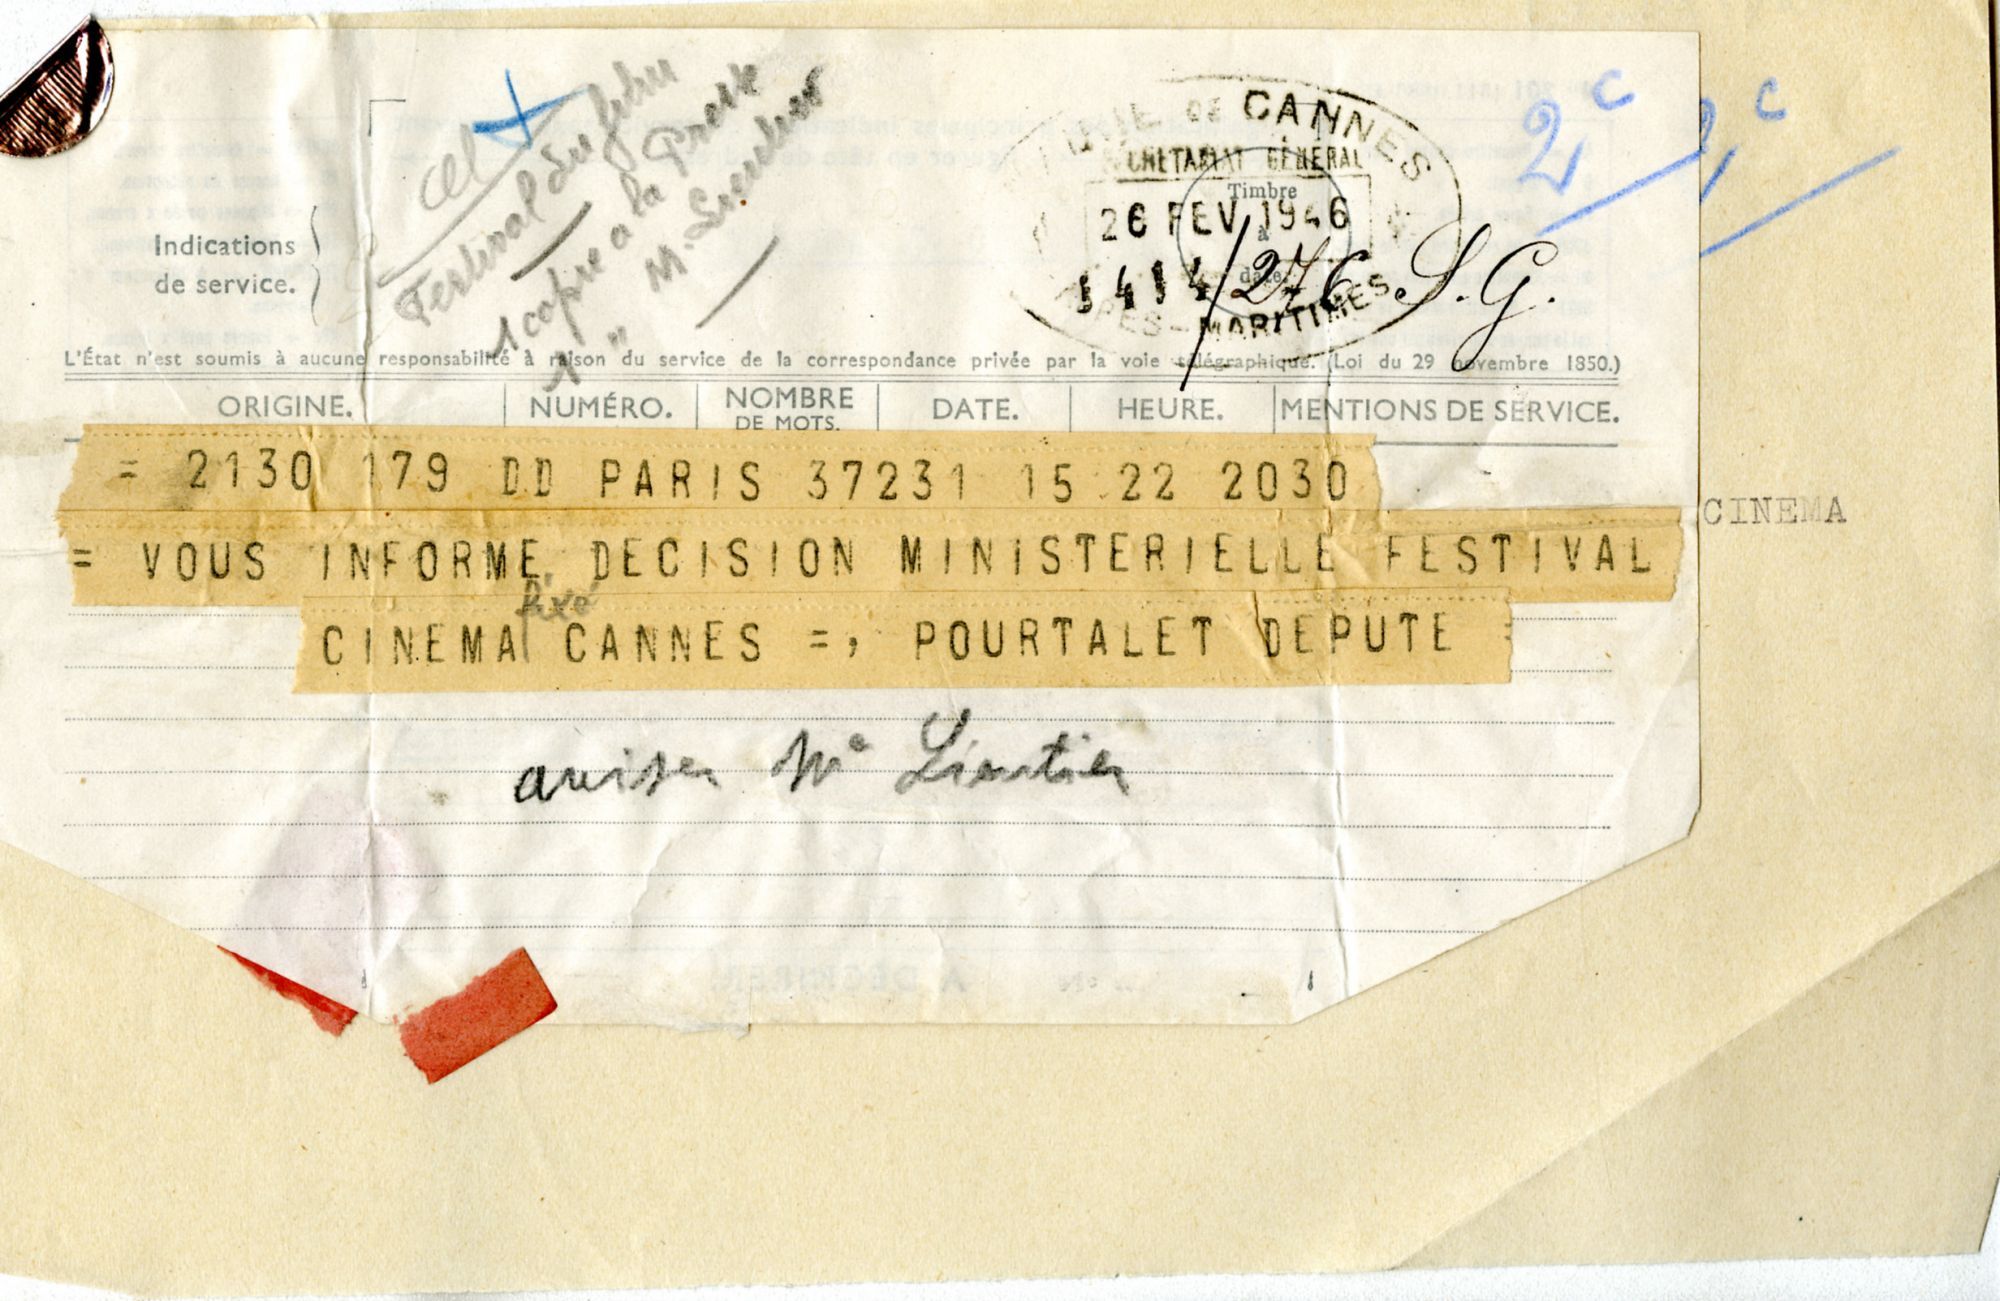 Cl
Festival du film
1 copie à la Presse
1 " M. Lieutier
VILLE DE CANNES
SECRETARIAT GÉNÉRAL
Timbre
26 FEV 1946
à
date
1414/276 S.G.
ALPES-MARITIMES
2c
1c
Indications
de service.
L'État n'est soumis à aucune responsabilité à raison du service de la correspondance privée par la voie télégraphique. (Loi du 29 novembre 1850.)
ORIGINE. NUMÉRO. NOMBRE DE MOTS. DATE. HEURE. MENTIONS DE SERVICE.
= 2130 179 DD PARIS 37231 15 22 2030
CINEMA
= VOUS INFORME DECISION MINISTERIELLE FESTIVAL
fixé
CINEMA CANNES =, POURTALET DEPUTE =
aviser Me Lieutier
A DÉCHIRER